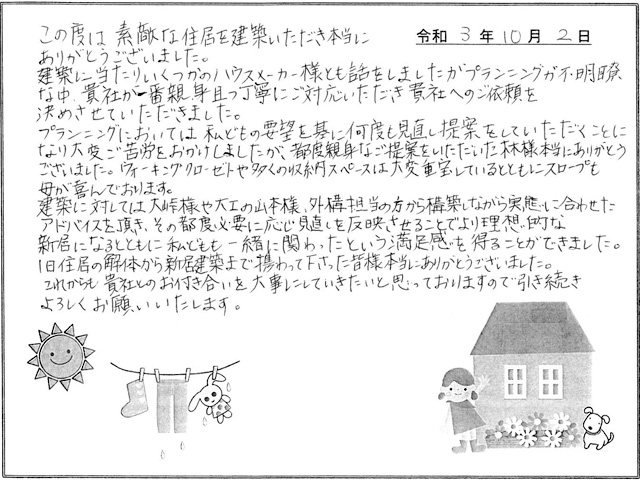 この度は 素敵な住居を建築いただき本当に
ありがとうございました。
令和 3 年 10 月 2 日
建築に当たりいくつかのハウスメーカー様とも話をしましたがプランニングが不明瞭
な中、貴社が一番親身且つ丁寧にご対応いただき貴社へのご依頼を
決めさせていただきました。
プランニングにおいては私どもの要望を基に何度も見直し提案をしていただくことに
なり大変ご苦労をおかけしましたが、都度親身なご提案をいただいた林様本当にありがとう
ございました。ウォーキングクローゼットや多くの収納スペースは大変重宝しているとともにスロープも
母が喜んでおります。
建築に対しては大峠様や大工の山本様、外構担当の方から構築しながら実態に合わせた
アドバイスを頂き、その都度必要に応じ見直しを反映させることでより理想的な
新居になるとともに私どもも一緒に関わったという満足感を得ることができました。
旧住居の解体から新居建築まで携わって下さった皆様本当にありがとうございました。
これからも貴社とのお付き合いを大事にしていきたいと思っておりますので引き続き
よろしくお願いいたします。